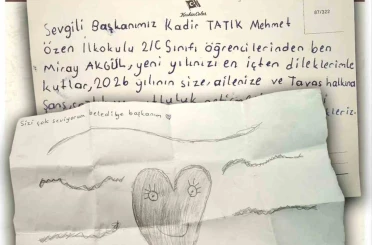 67/323
Sevgili Başkanımız Kadir TATIK Mehmet
Özen İlkokulu 2/C Sınıfı öğrencilerinden ben
Miray AKGÜL, yeni yılınızı en içten dileklerimle
kutlar, 2026 yılının size, ailenize ve Tavas halkına
Sizi çok seviyorum belediye başkanım